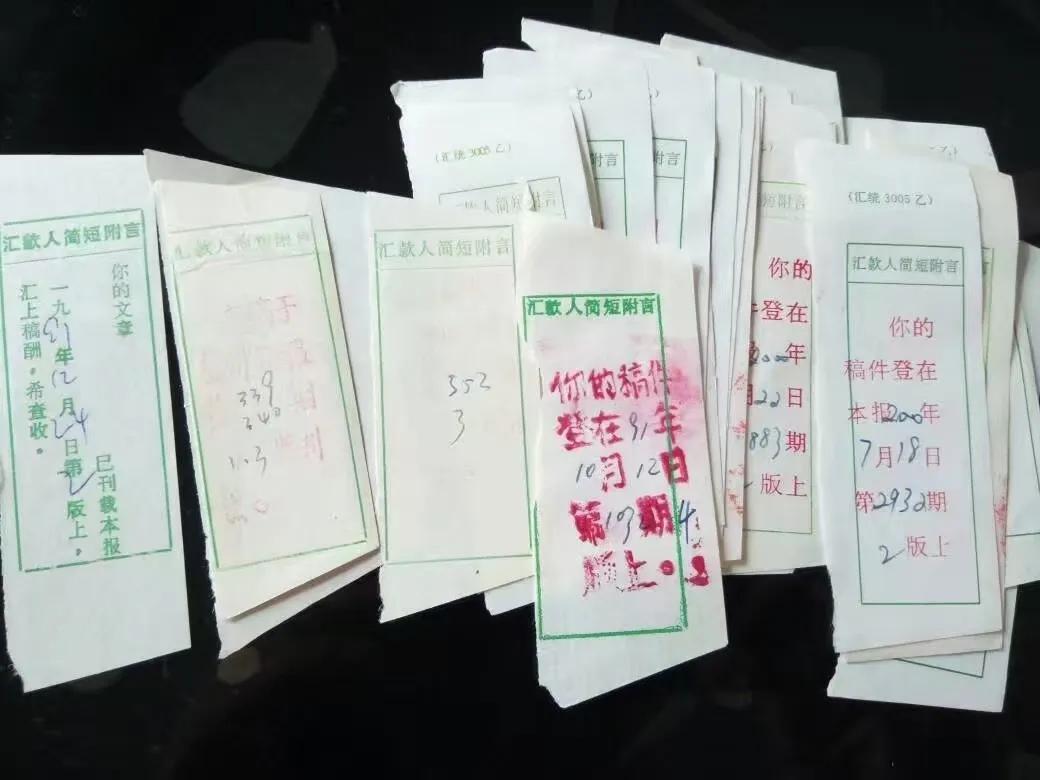 汇款人简短附言
你的文章
已刊载本报
一九91年12月24日第2版上。
汇上稿酬。希查收。
汇款人简短附言
339
340
汇款人简短附言
552
3
(汇统 3005 乙)
汇款人简短附言
汇款人简短附言
你的稿件
登在91年
10月12日
第期
版上
附言
附言
短附言
你的
登在
年
22日
883期
版上
(汇统 3005 乙)
汇款人简短附言
你的
稿件登在
本报2000年
7月18日
第2932期
2版上